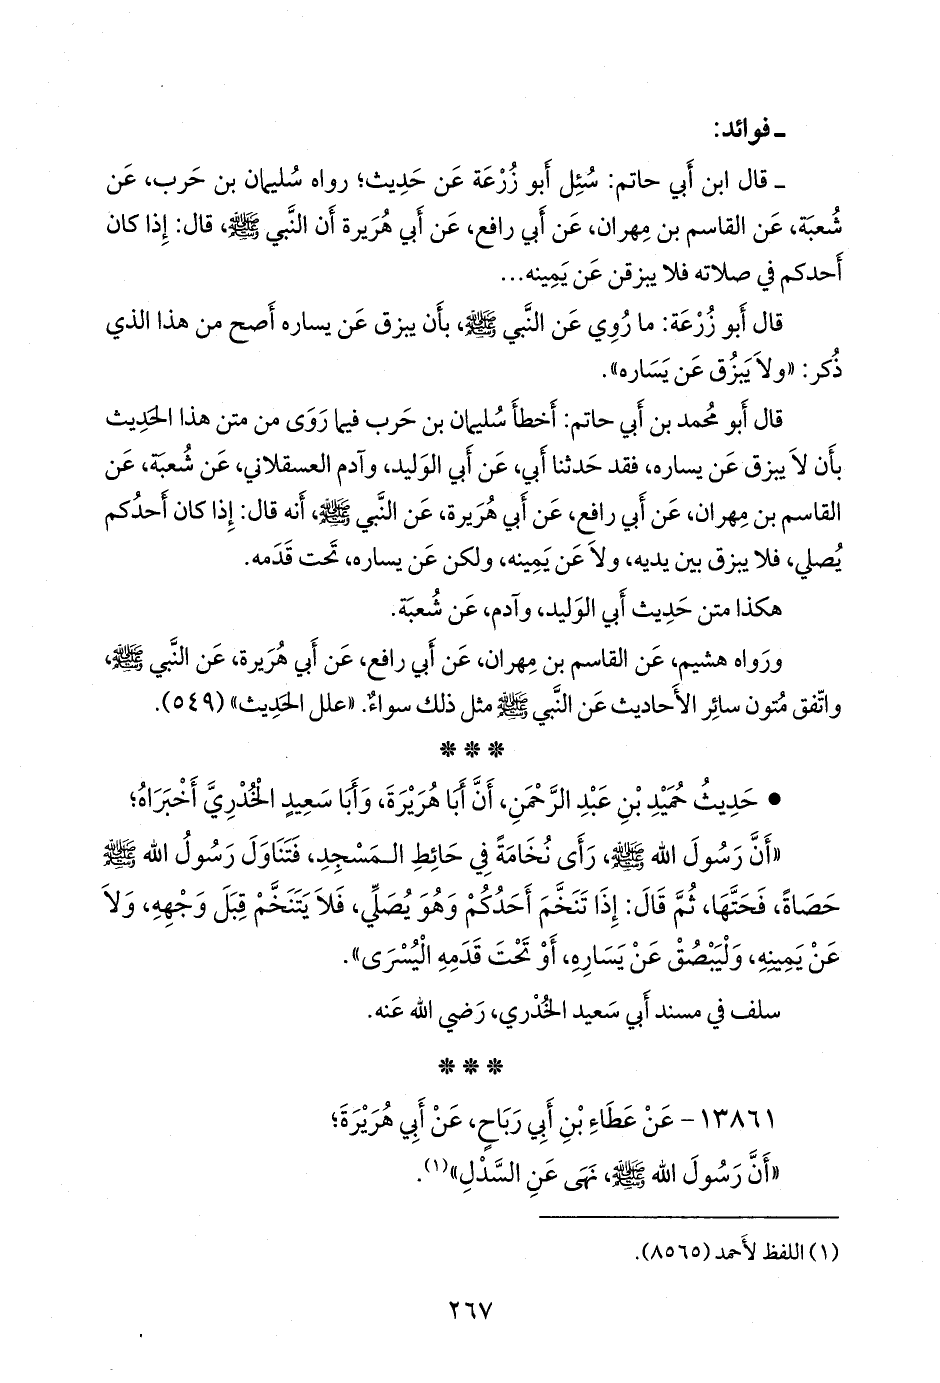 ـ فوائد:
ـ قال ابن أَبي حاتم: سُئِل أَبو زُرْعَة عَن حَديث؛ رواه سُليمان بن حَرب، عَن
شُعبَة، عَن القاسم بن مِهران، عَن أَبي رافع، عَن أَبي هُرَيرة أَن النَّبي ﷺ، قال: إِذا كان
أَحدكم في صلاته فلا يبزقن عَن يَمِينه...
قال أَبو زُرْعَة: ما رُوِي عَن النَّبي ﷺ، بأَن يبزق عَن يساره أَصح من هذا الذي
ذُكر: «ولاَ يَبزُق عَن يَسَاره».
قال أَبو مُحمد بن أَبي حاتم: أَخطأَ سُليمان بن حَرب فيما رَوَى من متن هذا الحَدِيث
بأَن لاَ يبزق عَن يساره، فقد حَدثنا أَبي، عَن أَبي الوَليد، وآدم العسقلاني، عَن شُعبَة، عَن
القاسم بن مِهران، عَن أَبي رافع، عَن أَبي هُريرة، عَن النَّبي ﷺ، أَنه قال: إِذا كان أَحدُكم
يُصلي، فلا يبزق بين يديه، ولاَ عَن يَمِينه، ولكن عَن يساره، تَحت قَدَمه.
هكذا متن حَديث أَبي الوَليد، وآدم، عَن شُعبَة.
ورَواه هشيم، عَن القاسم بن مِهران، عَن أَبي رافع، عَن أَبي هُرَيرة، عَن النَّبي ﷺ،
واتّفق مُتون سائِر الأَحاديث عَن النَّبي ﷺ مثل ذلك سواءٌ. «علل الحَدِيث» (٥٤٩).
* * *
• حَدِيثُ حُمَيْدِ بْنِ عَبْدِ الرَّحْمَنِ، أَنَّ أَبَا هُرَيْرَةَ، وَأَبَا سَعِيدٍ الْخُدْرِيَّ أَخْبَرَاهُ؛
«أَنَّ رَسُولَ الله ﷺ، رَأَى نُخَامَةً فِي حَائِطِ الـمَسْجِدِ، فَتَنَاوَلَ رَسُولُ الله ﷺ
حَصَاةً، فَحَتَّهَا، ثُمَّ قَالَ: إِذَا تَنَخَّمَ أَحَدُكُمْ وَهُوَ يُصَلِّي، فَلاَ يَتَنَخَّمْ قِبَلَ وَجْهِهِ، وَلاَ
عَنْ يَمِينِهِ، وَلْيَبْصُقْ عَنْ يَسَارِهِ، أَوْ تَحْتَ قَدَمِهِ الْيُسْرَى».
سلف في مسند أَبي سَعيد الخُدْري، رَضي الله عَنه.
* * *
١٣٨٦١ - عَنْ عَطَاءِ بْنِ أَبِي رَبَاحٍ، عَنْ أَبِي هُرَيْرَةَ؛
«أَنَّ رَسُولَ الله ﷺ، نَهَى عَنِ السَّدْلِ»(١).
(١) اللفظ لأَحمد (٨٥٦٥).
٢٦٧